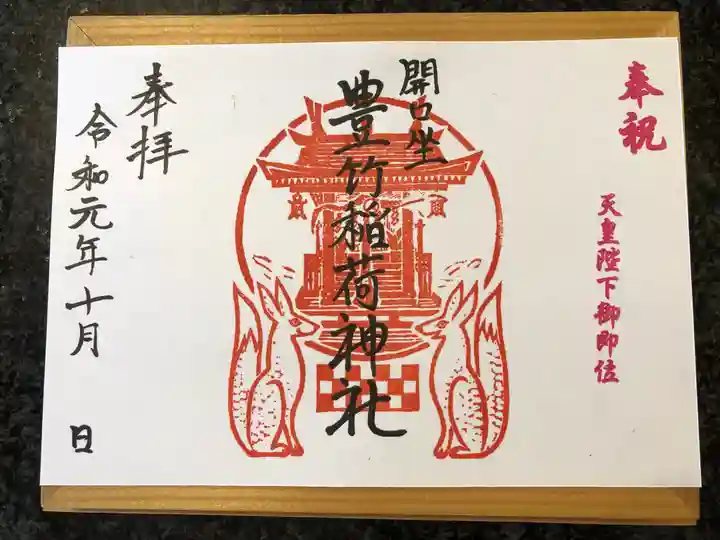 奉祝
天皇陛下御即位
開口坐
豊竹稲荷神社
奉拝
令和元年十月
日